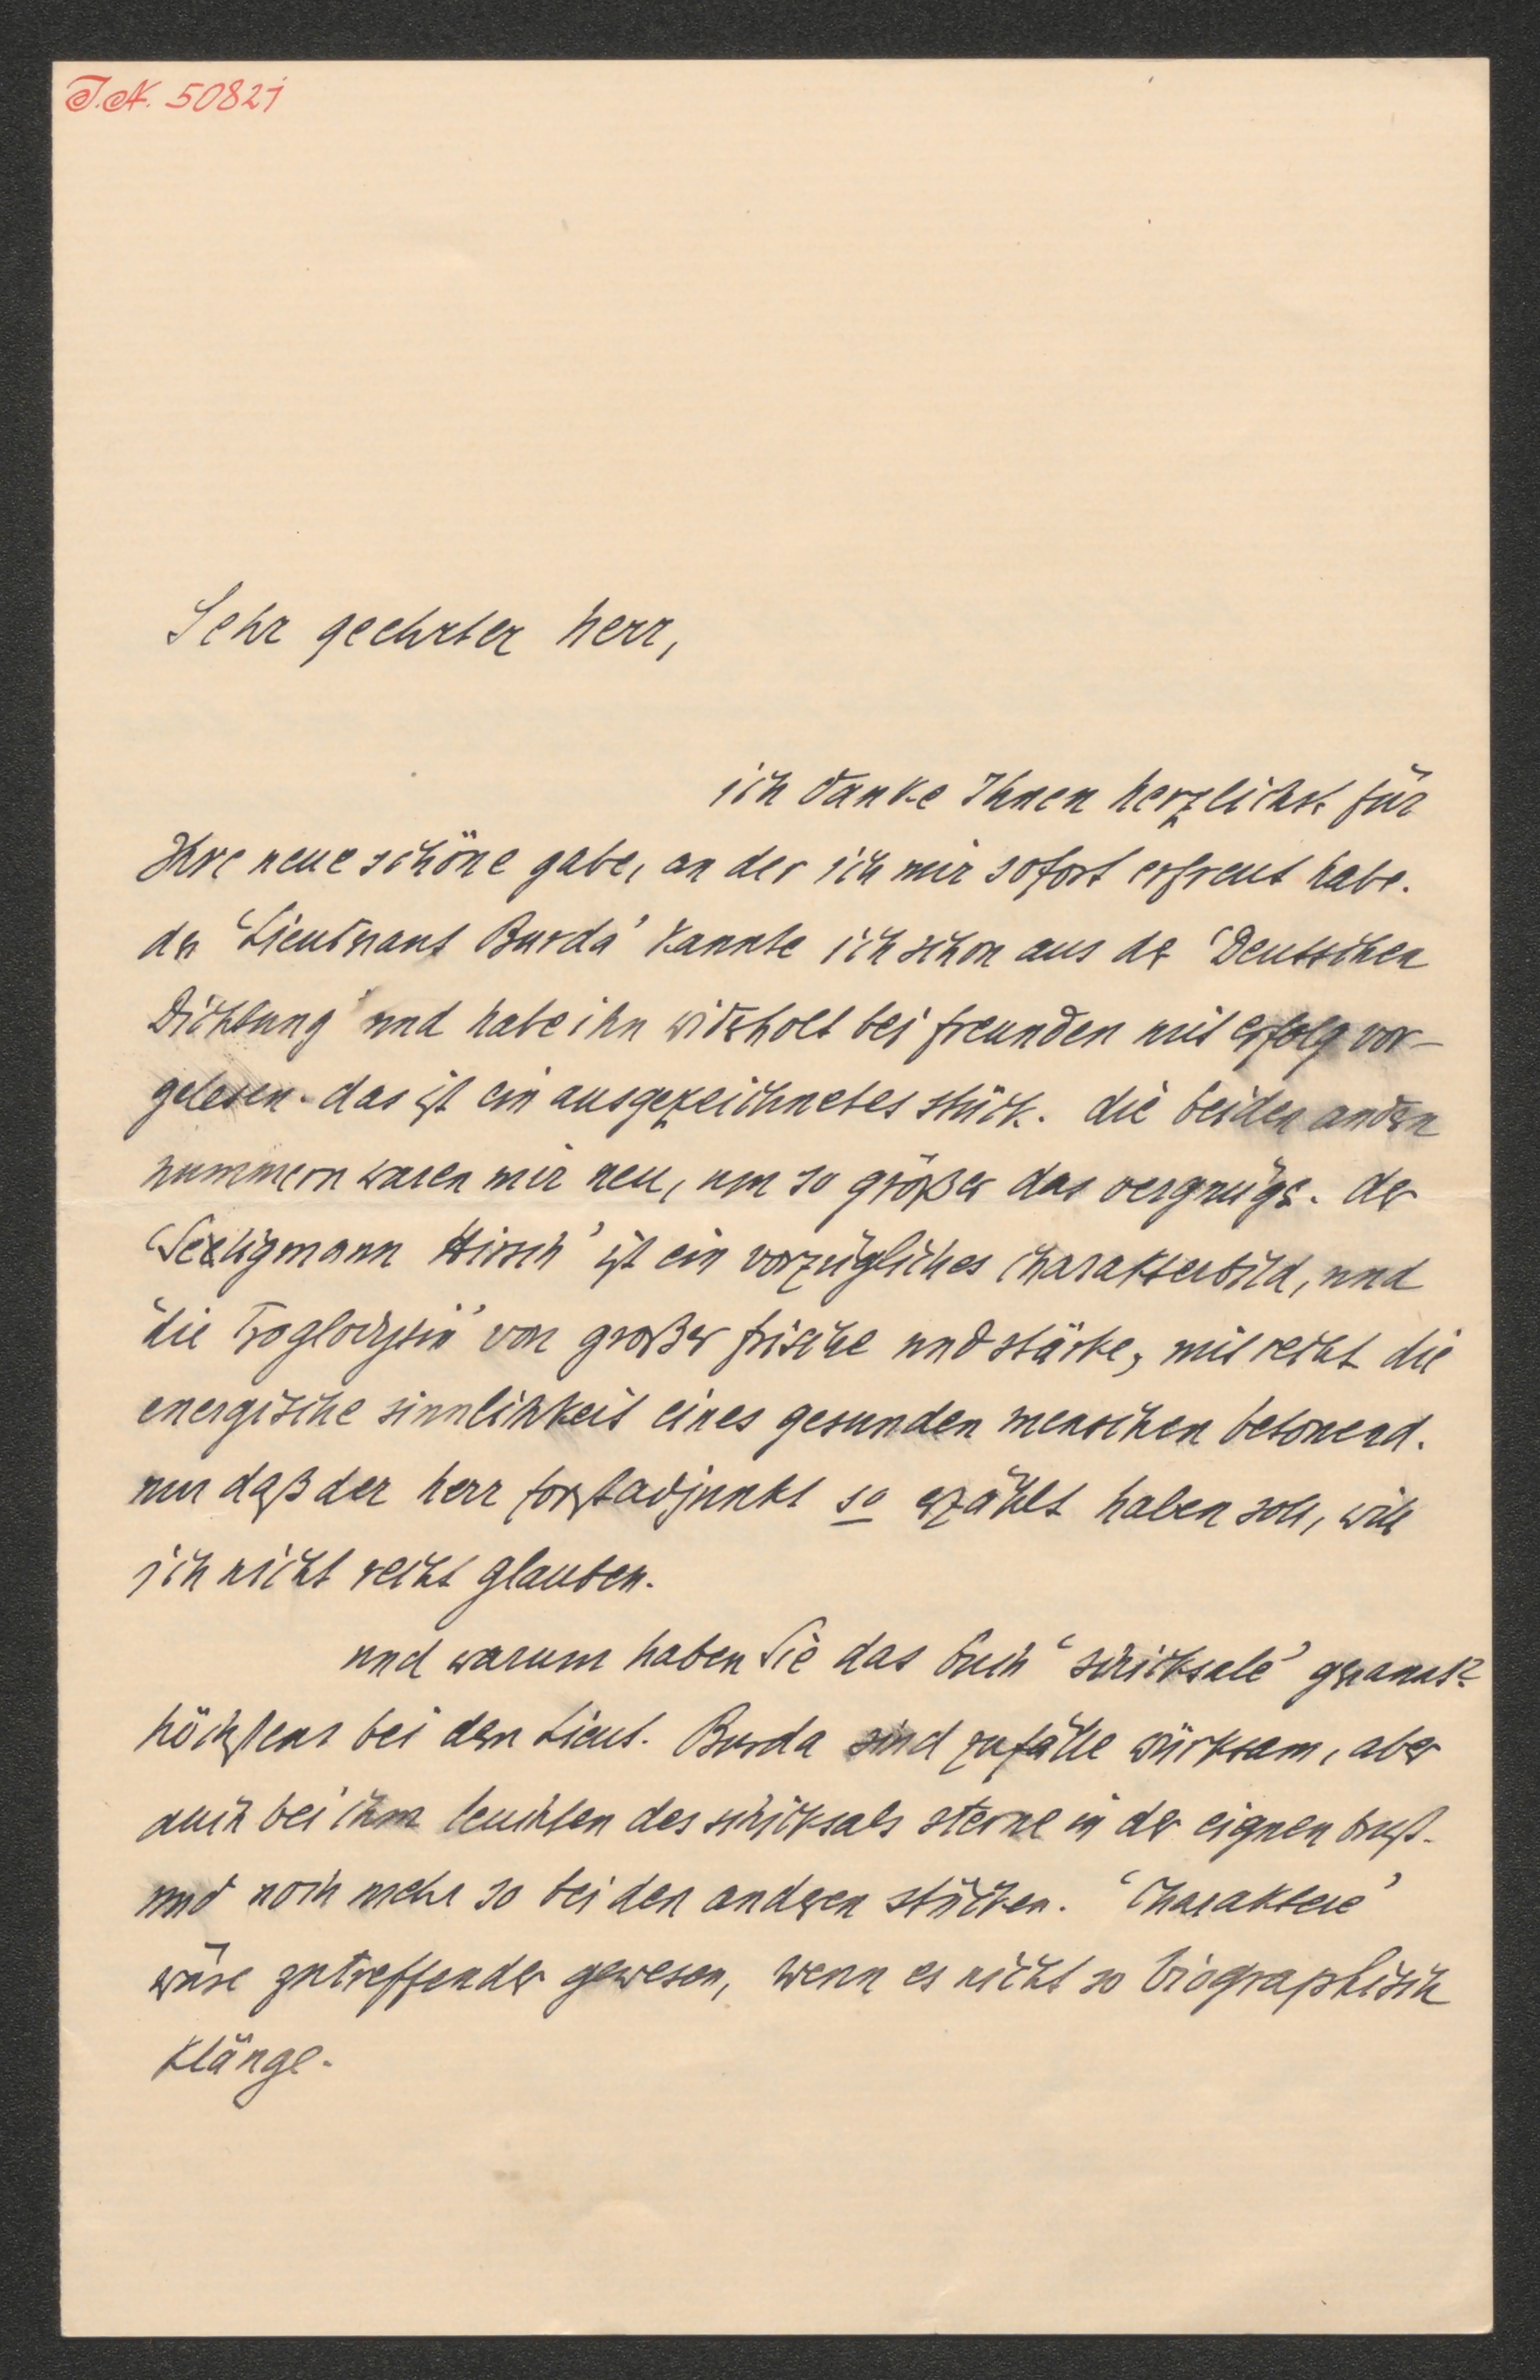 J.N. 50821
Sehr geehrter herr,
ich danke Ihnen herzlichst für
Ihre neue schöne gabe, an der ich mir sofort erfreut habe.
den 'Lieutnant Burda' kannte ich schon aus der 'Deutschen
Dichtung' und habe ihn widerholt bei freunden mit erfolg vor-
gelesen. das ist ein ausgezeichnetes stück. die beiden andern
nummern waren mir neu, um so größer das vergnügen. der
'Seligmann Hirsch' ist ein vorzügliches charakterbild, und
'die Troglodytin' von großer frische und stärke, mit recht die
energische sinnlichkeit eines gesunden menschen betonend.
nur daß der herr forstadjunkt so erzählt haben soll, will
ich nicht recht glauben.
und warum haben Sie das buch 'schicksale' genannt?
höchstens bei dem Lieut. Burda sind zufälle würksam, aber
auch bei ihm leuchten des schicksals sterne in der eignen brust.
und noch mehr so bei den anderen stücken. 'Charaktere'
wäre zutreffender gewesen, wenn es nicht so biographisch
klänge.